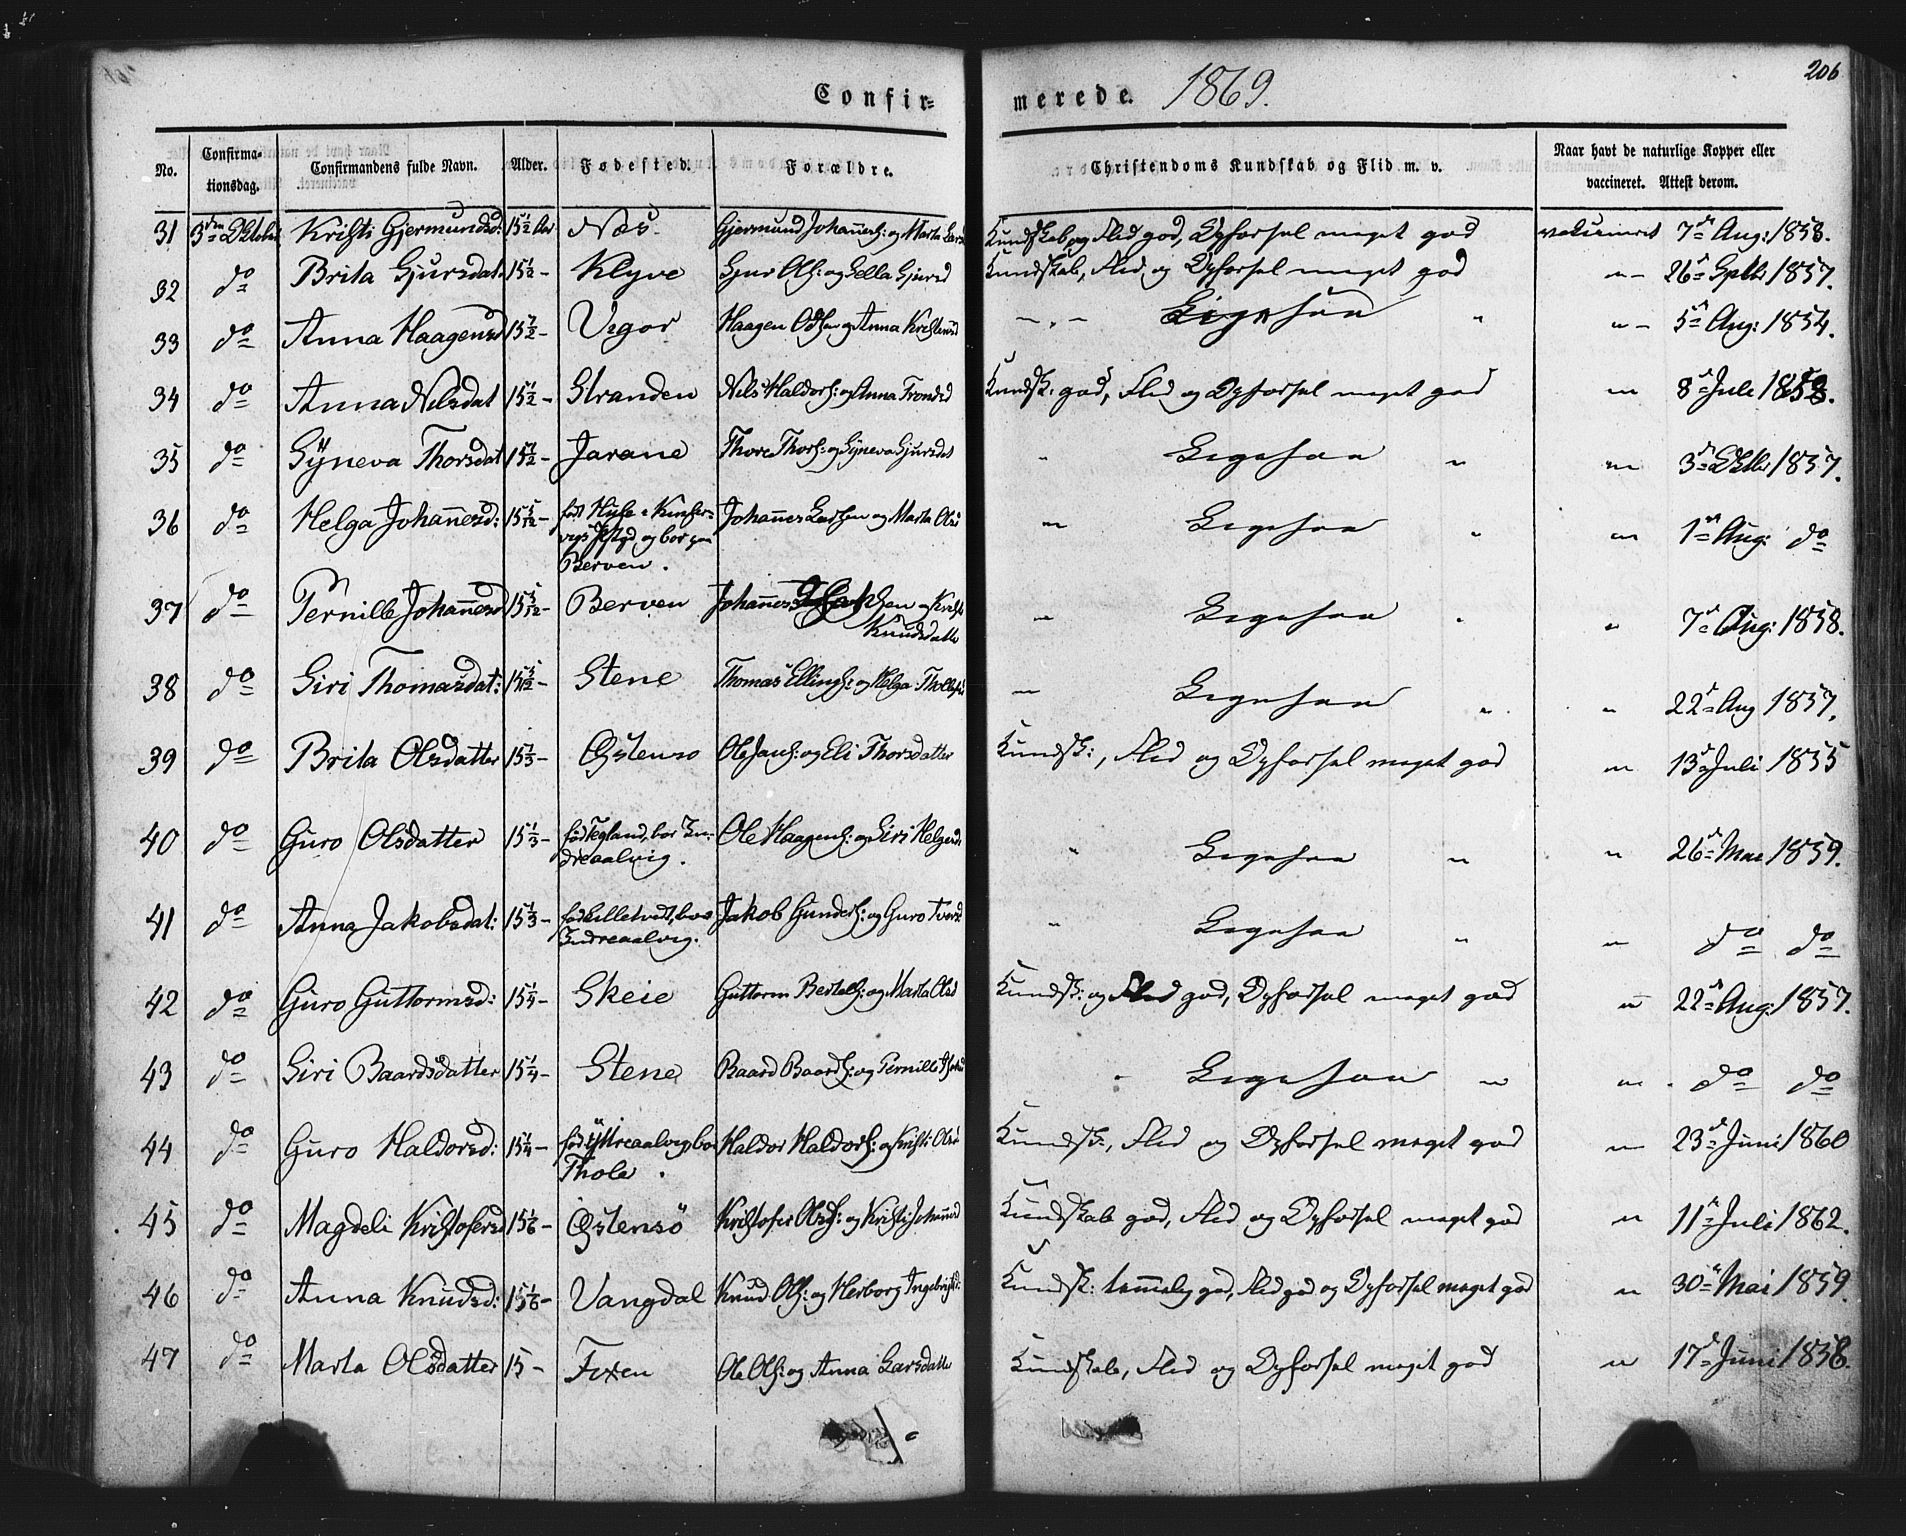 206
Confir- merede. 1869.
No. Confirma-tionsdag. Confirmandens fulde Navn. Alder. Fødested. Forældre. Christendoms Kundskab og Flid m. v. Naar havt de naturlige Kopper eller vaccineret. Attest derom.
31 3die Oktober Kristi Gjermundsd: 15½ Aar Næs. Gjermund Johannes: og Marta Kundskab og Flid god, Opførsel meget god vaksineret 7de Aug: 1858.
32 do Brita Gjursdat 15½ - Klyve Gjur Ols: og Gjursd Kundskab, Flid og Opførsel meget god " - 26de Septb: 1857.
33 do Anna Haagensd - Vegor Haagen og Anna Kristensd - " - Ligesaa " " - 5te Aug: 1854.
34 do Anna Nilsdat - Stranden Nils Haldors: og Anna Trondsd Kundsk: god, Flid og Opførsel meget god " 8de Juli 1858.
35 do Syneva Thorsdat - Jarane Thore Thors: og Syneva Gjursdat " Ligesaa " " 3de Oktbr 1857.
36 do Helga Johannesd: 15 5/12 - født Huse i Kinser-
vigs Pstgd, og bor paa
Berven. Johannes Larsen og Marta Ols " Ligesaa " " 1ste Aug: do
37 do Pernille Johannesd 15 5/12 - Berven Johannes og Kristi
Knudsdatte " Ligesaa " " 7de Aug: 1858.
38 do Siri Thomasdat: 15 5/12 - Stene Thomas Ellings: og Helga " Ligesaa " " 22de Aug 1857.
39 do Brita Olsdatter 15⅓ - Østensø Ole Jans: og Eli Thorsdatter Kundsk:, Flid og Opførsel meget god " 13de Juli 1855
40 do Guro Olsdatter 15⅓ - fød Tegland, bor In-
dreaalvig. Ole Haagens: og Siri Helgesd " Ligesaa " " 26de Mai 1859.
41 do Anna Jakobsdat: 15⅓ - fød Lilletvedt, bor
Indreaalvig. Jakob Gunders: og Guro Iversd " Ligesaa " " do do
42 do Guro Guttormsd: 15¼ - Skeie Guttorm Bertels: og Marta Olsd Kundsk: og Flid god, Opførsel meget god " 22de Aug: 1857.
43 do Siri Baardsdatter 15¼ - Stene Baard Baards: og Pernille " Ligesaa " " do do
44 do Guro Haldorsd: 15¼ - fød Yttreaalvig, bor
Thole. Haldor Haldors: og Kristi Ols Kundsk:, Flid og Opførsel meget god " 23de Juni 1860
45 do Magdeli Kristofersd 15⅙ - Østensö Kristofer Ols: og Kristi Johannesd Kundskab god, Flid og Opførsel meget god " 11te Juli 1862.
46 do Anna Knudsd: 15⅙ - Vangdal Knud Ols: og Herborg Ingebrigtsd: Kundsk: temmelig god, Flid god og Opførsel meget god " 30te Mai 1859.
47 do Marta Olsdatter 15 - Fixen Ole Ols: og Anna Larsdatte Kundskab, Flid og Opførsel meget god " 17de Juni 1858.